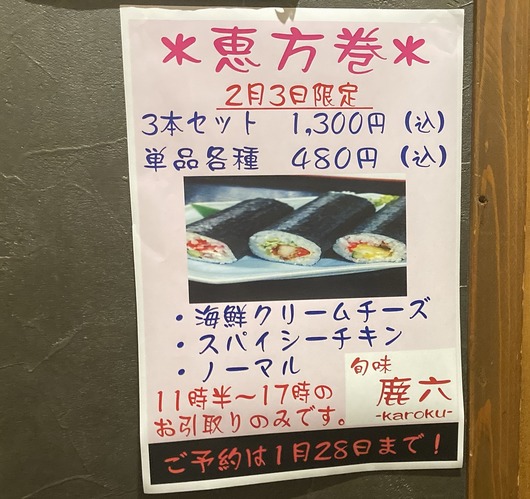 *恵方巻*
2月3日限定
3本セット 1,300円(込)
単品各種 480円(込)
・海鮮クリームチーズ
・スパイシーチキン
・ノーマル
11時半〜17時の
お引取りのみです。
旬味
鹿六
-karoku-
ご予約は1月28日まで!